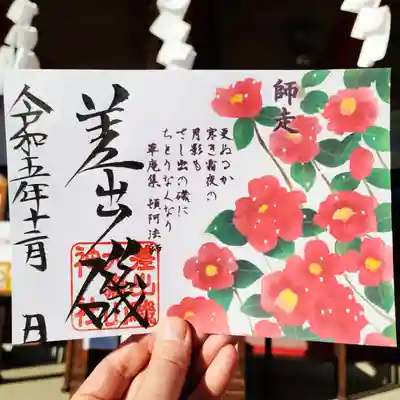 師走
更ぬるか
寒き霜夜の
月影も
さし出の磯に
ちとりなくなり
草庵集 頓阿法師
差出磯
差出磯
神社
令和五年十二月 日